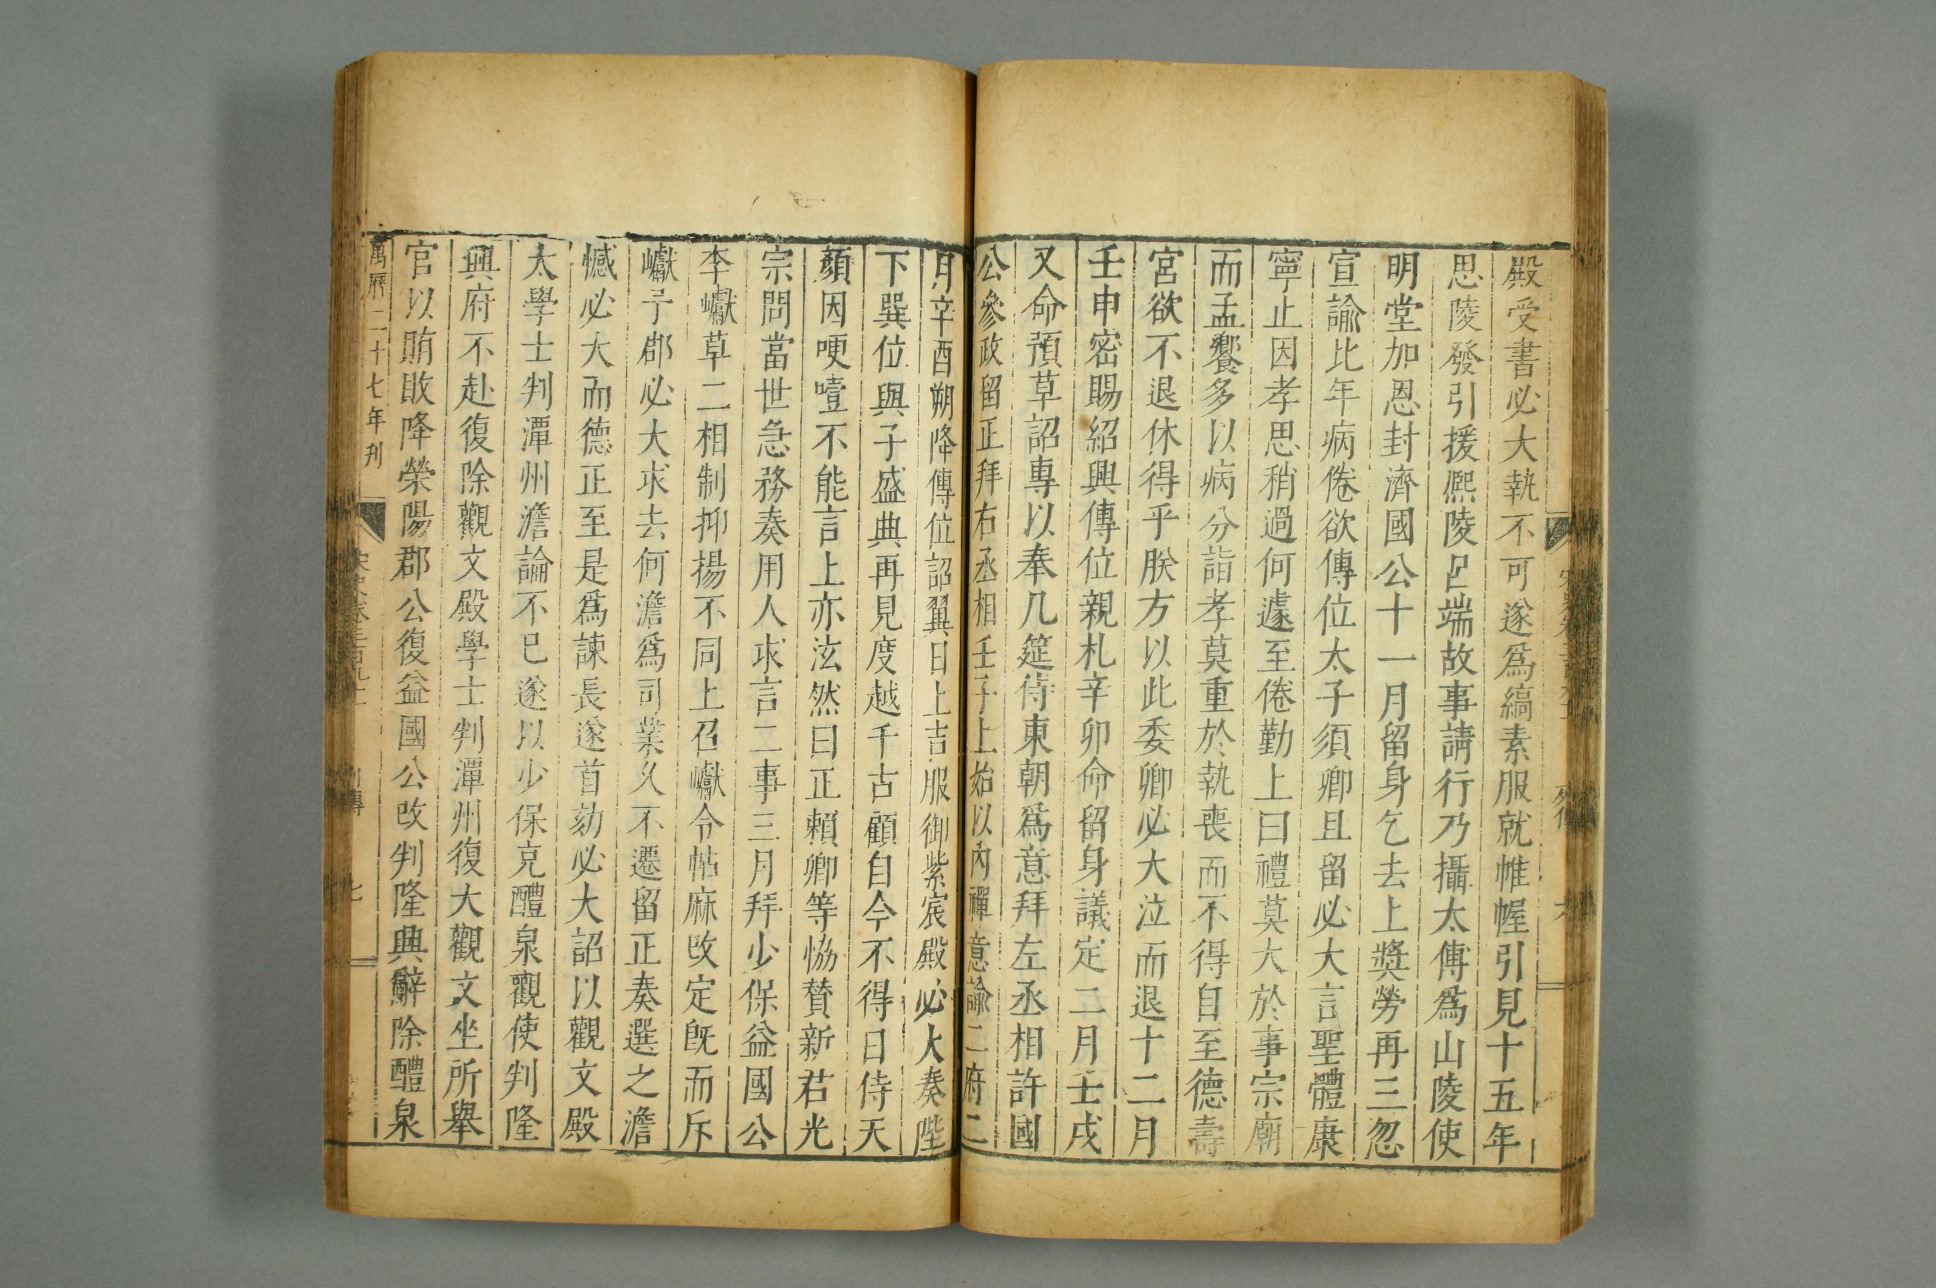 殿受書必大執不可遂爲縞素服就帷幄引見十五年
思陵發引援熙陵呂端故事請行乃攝太傅爲山陵使
明堂加恩封濟國公十一月留身乞去上獎勞再三忽
宣諭比年病倦欲傳位太子須卿且留必大言聖體康
寧止因孝思稍過何遽至倦勤上曰禮莫大於事宗廟
而孟饗多以病分詣孝莫重於執喪而不得自至德壽
宮欲不退休得乎朕方以此委卿必大泣而退十二月
壬申密賜紹興傳位親札辛卯命留身議定二月壬戌
又命預草詔專以奉几筵侍東朝爲意拜左丞相許國
公參政留正拜右丞相壬子上始以內禪意諭二府二
月辛酉朔降傳位詔翼日上吉服御紫宸殿必大奏陛
下巽位與子盛典再見度越千古顧自今不得日侍天
顏因哽噎不能言上亦泫然曰正賴卿等恊贊新君光
宗問當世急務奏用人求言二事三月拜少保益國公
李巘草二相制抑揚不同上召巘令帖麻改定既而斥
巘予郡必大求去何澹爲司業久不遷留正奏選之澹
憾必大而德正至是爲諫長遂首劾必大詔以觀文殿
大學士判潭州澹論不已遂以少保充醴泉觀使判隆
興府不赴復除觀文殿學士判潭州復大觀文坐所舉
官以賄敗降榮陽郡公復益國公改判隆興辭除醴泉
萬曆二十七年刊
宋史卷三百九十一
列傳
七